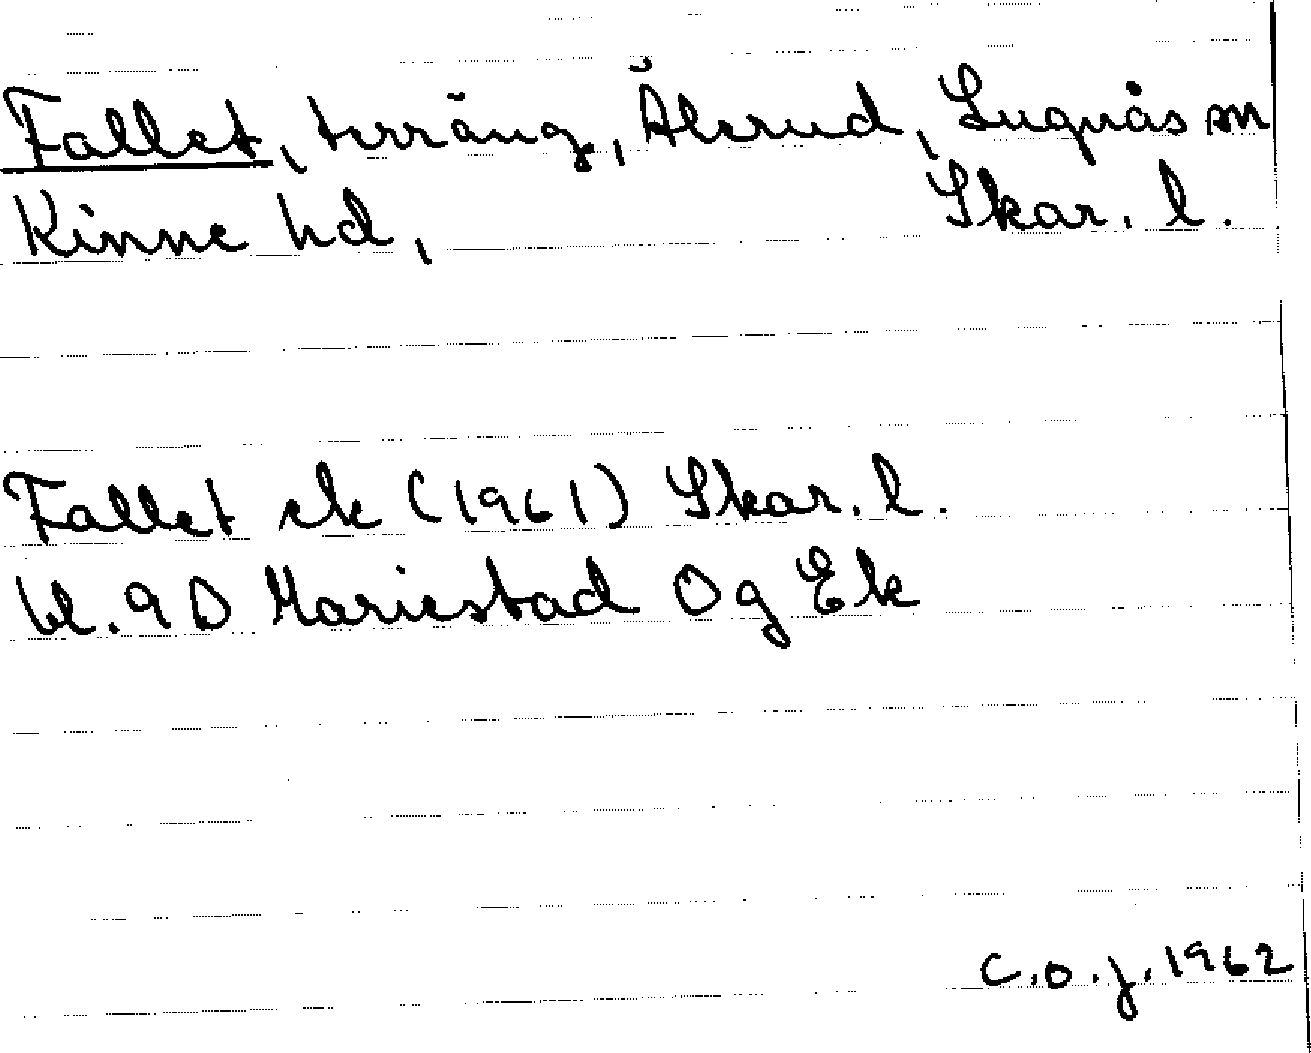 Fallet, terräng, Ålerud, Lugnås sn
Kinne hd, Skar. l.
Fallet ek (1961) Skar. l.
bl. 9D Mariestad Og Ek
C.O.J. 1962